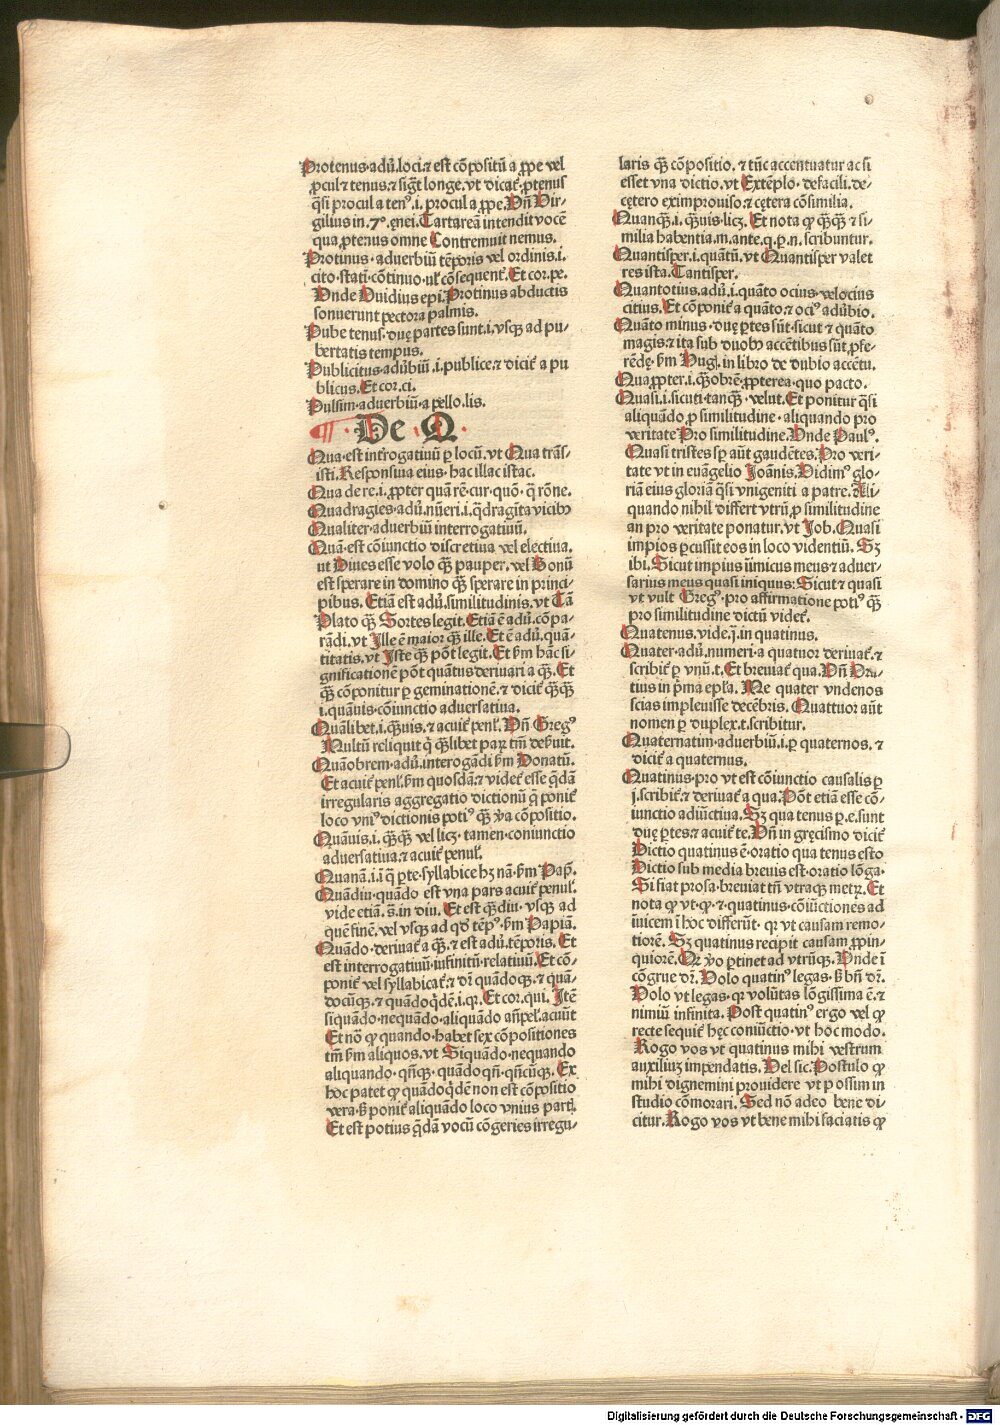 Protenus·adū.loci.⁊ est cōpositū a ꝓpe vel
ꝓcul ⁊ tenus.⁊ sigt̄ longe.vt dicat̄.ꝓtenus
q̄si procul a tenꝰ.i.procul a ꝓpe.Vn̄ Vir-
gilius in.7°.ęnei.Tartareā intendit vocē
qua ꝓtenus omne Contremuit nemus.
Protinus·aduerbiū tēporis vel ordinis.i.
cito·statī·cōtinuo·ul̄ cōsequent̄.Et cor.pe.
Vnde Ouidius epi.Protinus abductis
sonuerunt pectora palmis.
Pube tenus·duę partes sunt.i.vsqꝫ ad pu-
bertatis tempus.
Publicitus·adūbiū.i.publice.⁊ dicit̄ a pu
blicus.Et cor.ci.
Pulsim·aduerbiū·a pello.lis.
¶·De·Q·
Qua·est int̄rogatiuū ꝑ locū.vt Qua trās-
isti.Responsiua eius·hac illac istac.
Qua de re.i.ꝓpter quā rē·cur·quō·q̄ rōne.
Quadragies·adū.nūeri.i.q̄dragita vicibꝰ
Qualiter·aduerbiū interrogatiuū.
Quā·est cōiunctio discretiua vel electiua.
ut Diues esse volo qꝫ̄ pauper.vel Bonū
est sperare in domino qꝫ̄ sperare in princi-
pibus. Etiā est adū.similitudinis.vt Tā
Plato qꝫ̄ Sortes legit.Etiā ē adū.cōpa-
rādi.vt Ille ē maior qꝫ̄ ille.Et ē adū.quā-
titatis.vt Iste qꝫ̄ pōt legit.Et ẜm hāc si-
gnificationē pōt quātus deriuari a qꝫ̄.Et
qꝫ̄ cōponitur ꝑ geminationē.⁊ dicit̄ qꝫ̄qꝫ̄
i.quāuis·cōiunctio aduersatiua.
Quālibet.i.qꝫ̄uis.⁊ acuit̄ penl̄.Vn̄ Gregꝰ
Multū reliquit q̇ qꝫ̄libet paꝝ tm̄ debuit.
Quāobrem·adū.interogādi ẜm Donatū.
Et acuit̄ penl̄.ẜm quosdā.⁊ videt̄ esse q̄dā
irregularis aggregatio dictionū q̄ ponit̄
loco vniꝰ dictionis potiꝰ qꝫ̄ v̓a cōpositio.
Quāuis.i.qꝫ̄qꝫ̄ vel licꝫ·tamen·coniunctio
aduersatiua.⁊ acuit̄ penul̄.
Quanā.i.ī q̄ ꝑte·syllabice hꝫ nā·ẜm Papꝭ.
Quādiu·quādo est vna pars acuit̄ penul̄.
vide etiā.s̄.in diu.Et est qꝫ̄diu·vsqꝫ ad
quē finē.vel vsqꝫ ad qd̓ tēpꝰ·ẜm Papiā.
Quādo·deriuat̄ a qꝫ̄.⁊ est adū.tēporis. Et
est interrogatiuū·infinitū·relatiuū.Et cō-
ponit̄ vel syllabicat̄.⁊ dr̄ quādoqꝫ.⁊ quā-
docūqꝫ.⁊ quādoqdē.i.qꝛ.Et cor.qui. Itē
siquādo·nequādo·aliquādo an̄pel̄.acuūt
Et nō ꝙ quando·habet sex cōpositiones
tm̄ ẜm aliquos.vt Siquādo·nequando
aliquando·qn̄qꝫ·quādoqn̄·qn̄cūqꝫ. Ex
hoc patet ꝙ quādoq̇dē non est cōpositio
vera·ẜ ponit̄ aliquādo loco vnius partꝭ.
Et est potius q̄dā vocū cōgeries irregu-
laris qꝫ̄ cōpositio. ⁊ tūc accentuatur ac si
esset vna dictio.vt Extēplo·defacili.de-
cętero eximprouiso.⁊ cętera cōsimilia.
Quanqꝫ̄.i.qꝫ̄uis·licꝫ. Et nota ꝙ qꝫ̄qꝫ̄ ⁊ si-
milia habentia.m.ante.q.ꝑ.n.scribuntur.
Quantisper.i.quātū.vt Quantisper valet
res ista.Tantisper.
Quantotius.adū.i.quāto ocius·velocius
citius.Et cōponit̄ a quāto.⁊ ociꝰ adūbio.
Quāto minus·duę ꝑtes sūt·sicut ⁊ quāto
magis.⁊ ita sub duobꝰ accētibus sūt ꝓfe-
rēdę·ẜm Hugꝭ.in libro de dubio accētu.
Quaꝓpter.i.qꝫ̄obrē·ꝓpterea·quo pacto.
Quasi.i.sicuti·tanqꝫ̄·velut.Et ponitur q̄si
aliquādo ꝓ similitudine·aliquando pro
veritate Pro similitudine.Vnde Paulꝰ.
Quasi tristes sꝑ aūt gaudētes.Pro veri-
tate vt in euāgelio Joānis.Vidimꝰ glo-
riā eius gloriā q̄si vnigeniti a patre.Ali-
quando nihil differt vtrū ꝓ similitudine
an pro veritate ponatur.vt Job.Quasi
impios ꝑcussit eos in loco videntiū. Sꝫ
ibi.Sicut impius inimicus meus ⁊ aduer-
sarius meus quasi iniquus:Sicut ⁊ quasi
vt vult Gregꝰ·pro affirmatione potiꝰ qꝫ̄
pro similitudine dictū videt̄.
Quatenus.vide.j̄.in quatinus.
Quater·adū.numeri·a quatuor deriuat̄.⁊
scribit̄ ꝑ vnū.t.Et breuiat̄ qua.Vn̄ Ora-
tius in pͥma epl̄a. Me quater vndenos
scias impleuisse decēbris. Quattuor aūt
nomen ꝑ duplex.t.scribitur.
Quaternatim·aduerbiū.i.ꝑ quaternos. ⁊
dicit̄ a quaternus.
Quatinus·pro vt est cōiunctio causalis ꝑ
i.scribit̄.⁊ deriuat̄ a qua.Pōt etiā esse cō-
iunctio adiūctiua.Sꝫ qua tenus ꝑ.e.sunt
duę ꝑtes.⁊ acuit̄ te.Vn̄ in gręcismo dicit̄
Dictio quatinus ē·oratio qua tenus esto
Dictio sub media breuis est·oratio lōga·
Si fiat prosa·breuiat tn̄ vtraqꝫ metꝝ. Et
nota ꝙ vt·ꝙ·⁊·quatinus·cōiūctiones ad
inuicem ī hoc differūt· qꝛ vt causam remo-
tiorē. Sꝫ quatinus recipit causam ꝓpin-
quiorē.Qꝛ v̓o ꝑtinet ad vtrūqꝫ.Vnde ī
cōgrue dr̄.Volo quatinꝰ legas·ẜ bn̄ dr̄.
Volo vt legas·qꝛ volūtas lōgissima ē.⁊
nimiū infinita. Post quatinꝰ ergo vel ꝙ
recte sequit̄ hęc coniūctio·vt hoc modo.
Rogo vos vt quatinus mihi vestrum
auxiliuꝫ impendatis. Vel sic.Postulo ꝙ
mihi dignemini prouidere vt possim in
studio cōmorari. Sed nō adeo bene di-
citur.Rogo vos vt bene mihi faciatis ꝙ
Digitalisierung gefördert durch die Deutsche Forschungsgemeinschaft - DFG